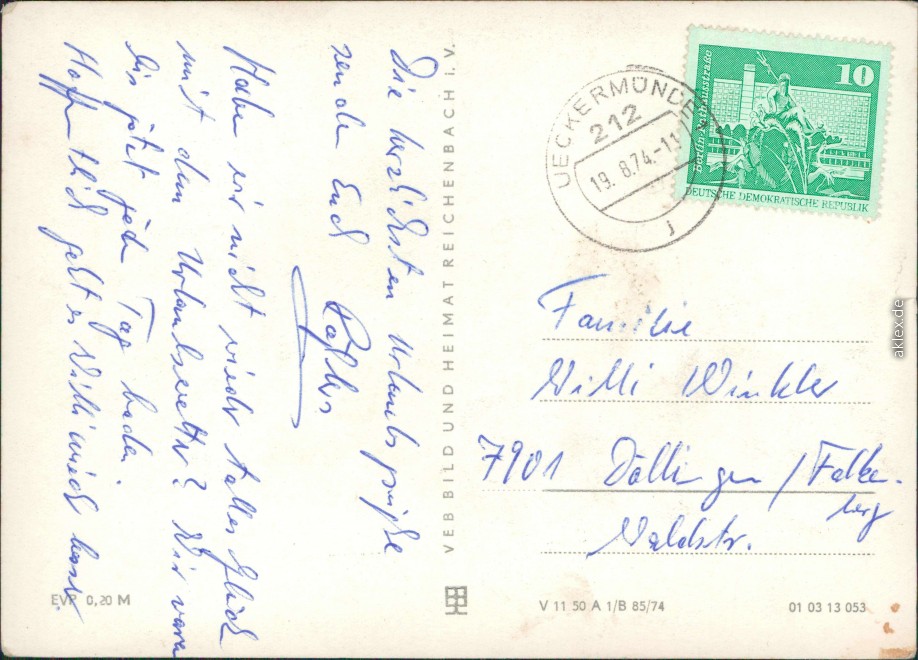 Die herzlichsten Urlaubsgrüße
senden Euch
Haben wir nicht wieder tolles Glück
mit dem Urlaubswetter? Wir waren
bis jetzt jeden Tag baden.
Hoffentlich geht es Willi wieder besser.
VEB BILD UND HEIMAT REICHENBACH i. V.
EVP 0,20 M
UECKERMÜNDE
212
19.8.74.-11
j
10
Berlin Rathausstraße
DEUTSCHE DEMOKRATISCHE REPUBLIK
Familie
Willi Winkler
7901 Döllingen / Falken-
berg
Waldstr.
V 11 50 A 1/B 85/74
01 03 13 053
aklex.de